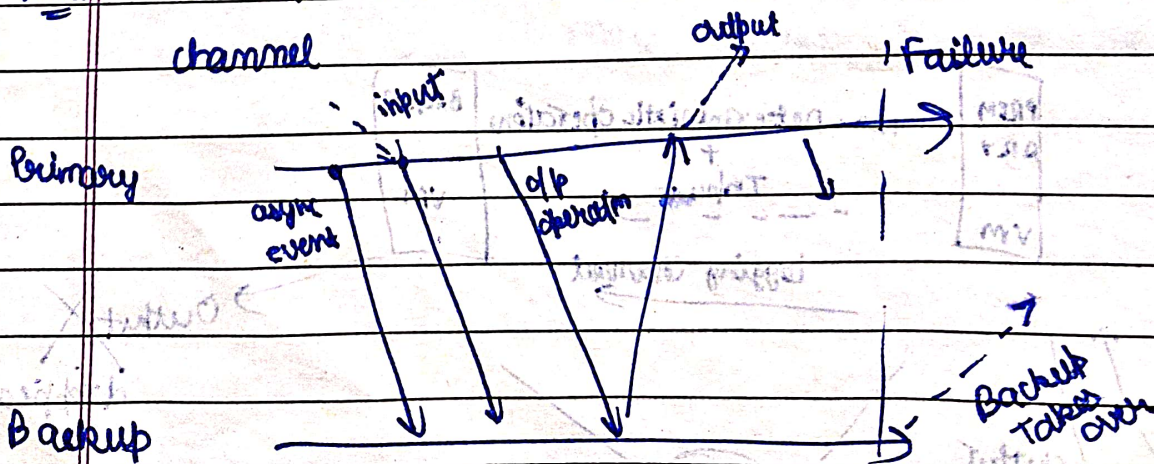 channel
output
Failure
input
Primary
async
event
o/p
operatn
Backup
Backup
Takes
over